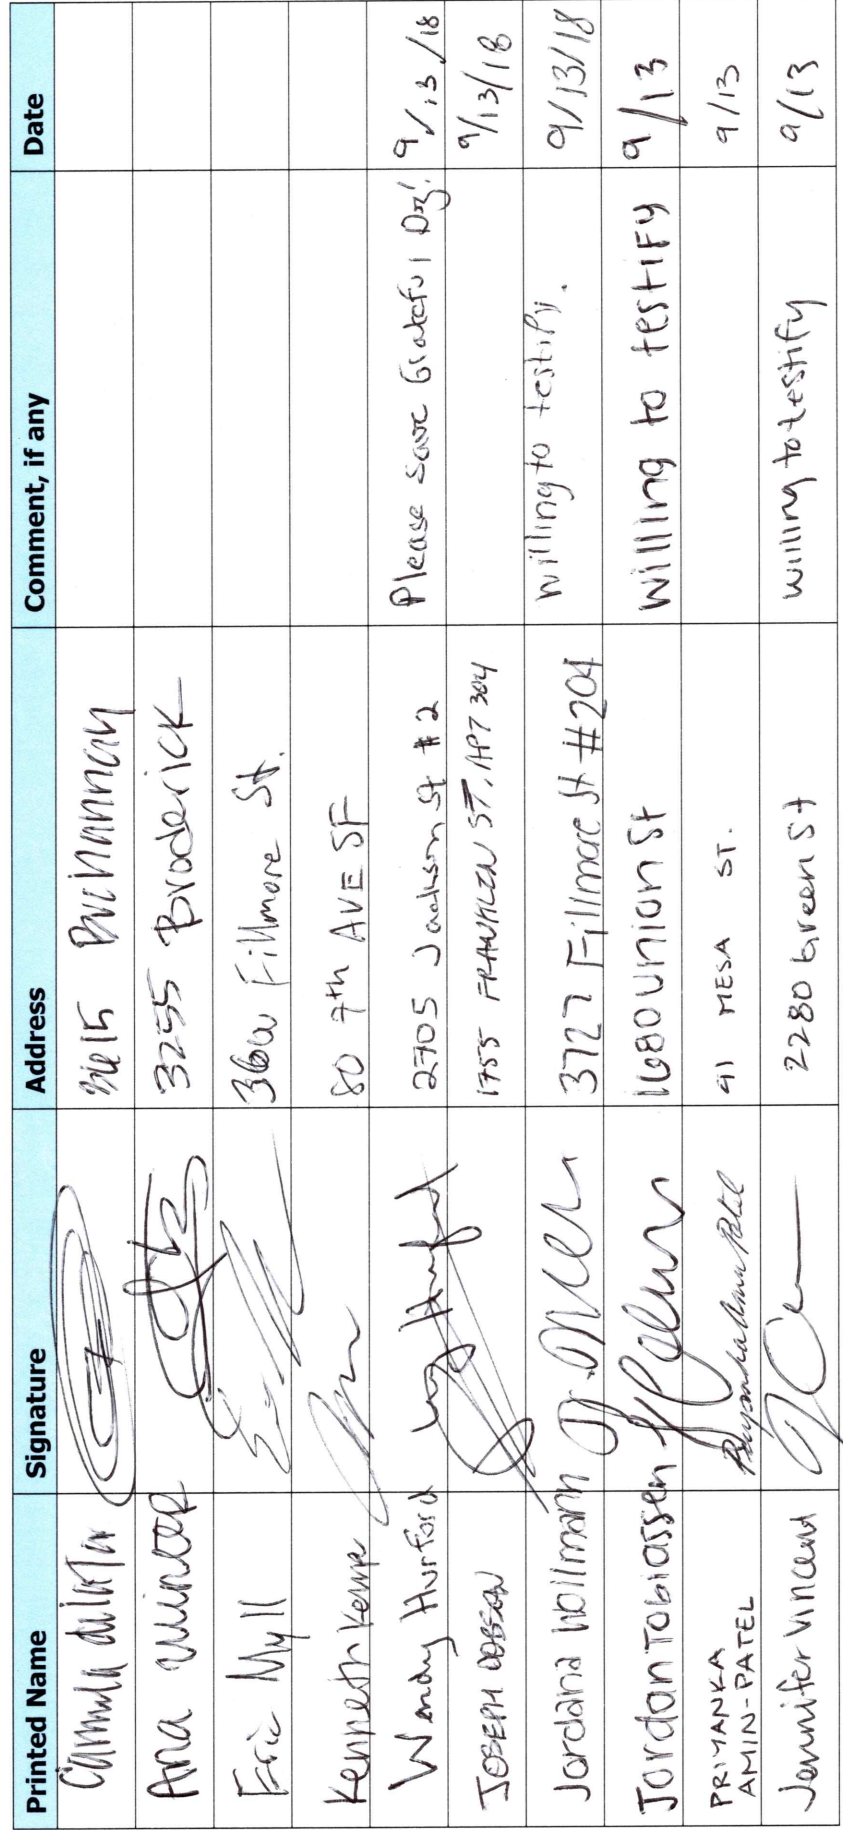 Printed Name Signature Address Comment, if any Date
3615 Buchannan
Ana Winter 3255 Broderick
Eric Myll Fillmore St.
Kenneth Kempe 80 7th AVE SF
Wendy Hurford 2705 Jackson St #2 Please save Grateful Dog! 9/13/18
JOSEPH DOBSON 1755 FRANKLIN ST, APT 304 9/13/18
Jordana Hollmann 3727 Fillmore St #204 willing to testify. 9/13/18
Jordan Tobiassen 1680 Union St Willing to testify 9/13
PRIYANKA
AMIN-PATEL Priyanka Amin Patel 91 MESA ST. 9/13
Jennifer Vincent 2280 Green St willing to testify 9/13